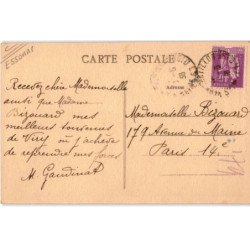 ESSONNE
CARTE POSTALE
Adresse
Recevez chère Mademoiselle
ainsi que Madame
Bizouard mes
meilleurs souvenirs
de Viry où j'achève
de reprendre mes forces
M. Gaudinat
Mademoiselle Bizouard
179 Avenue du Maine
Paris 14e